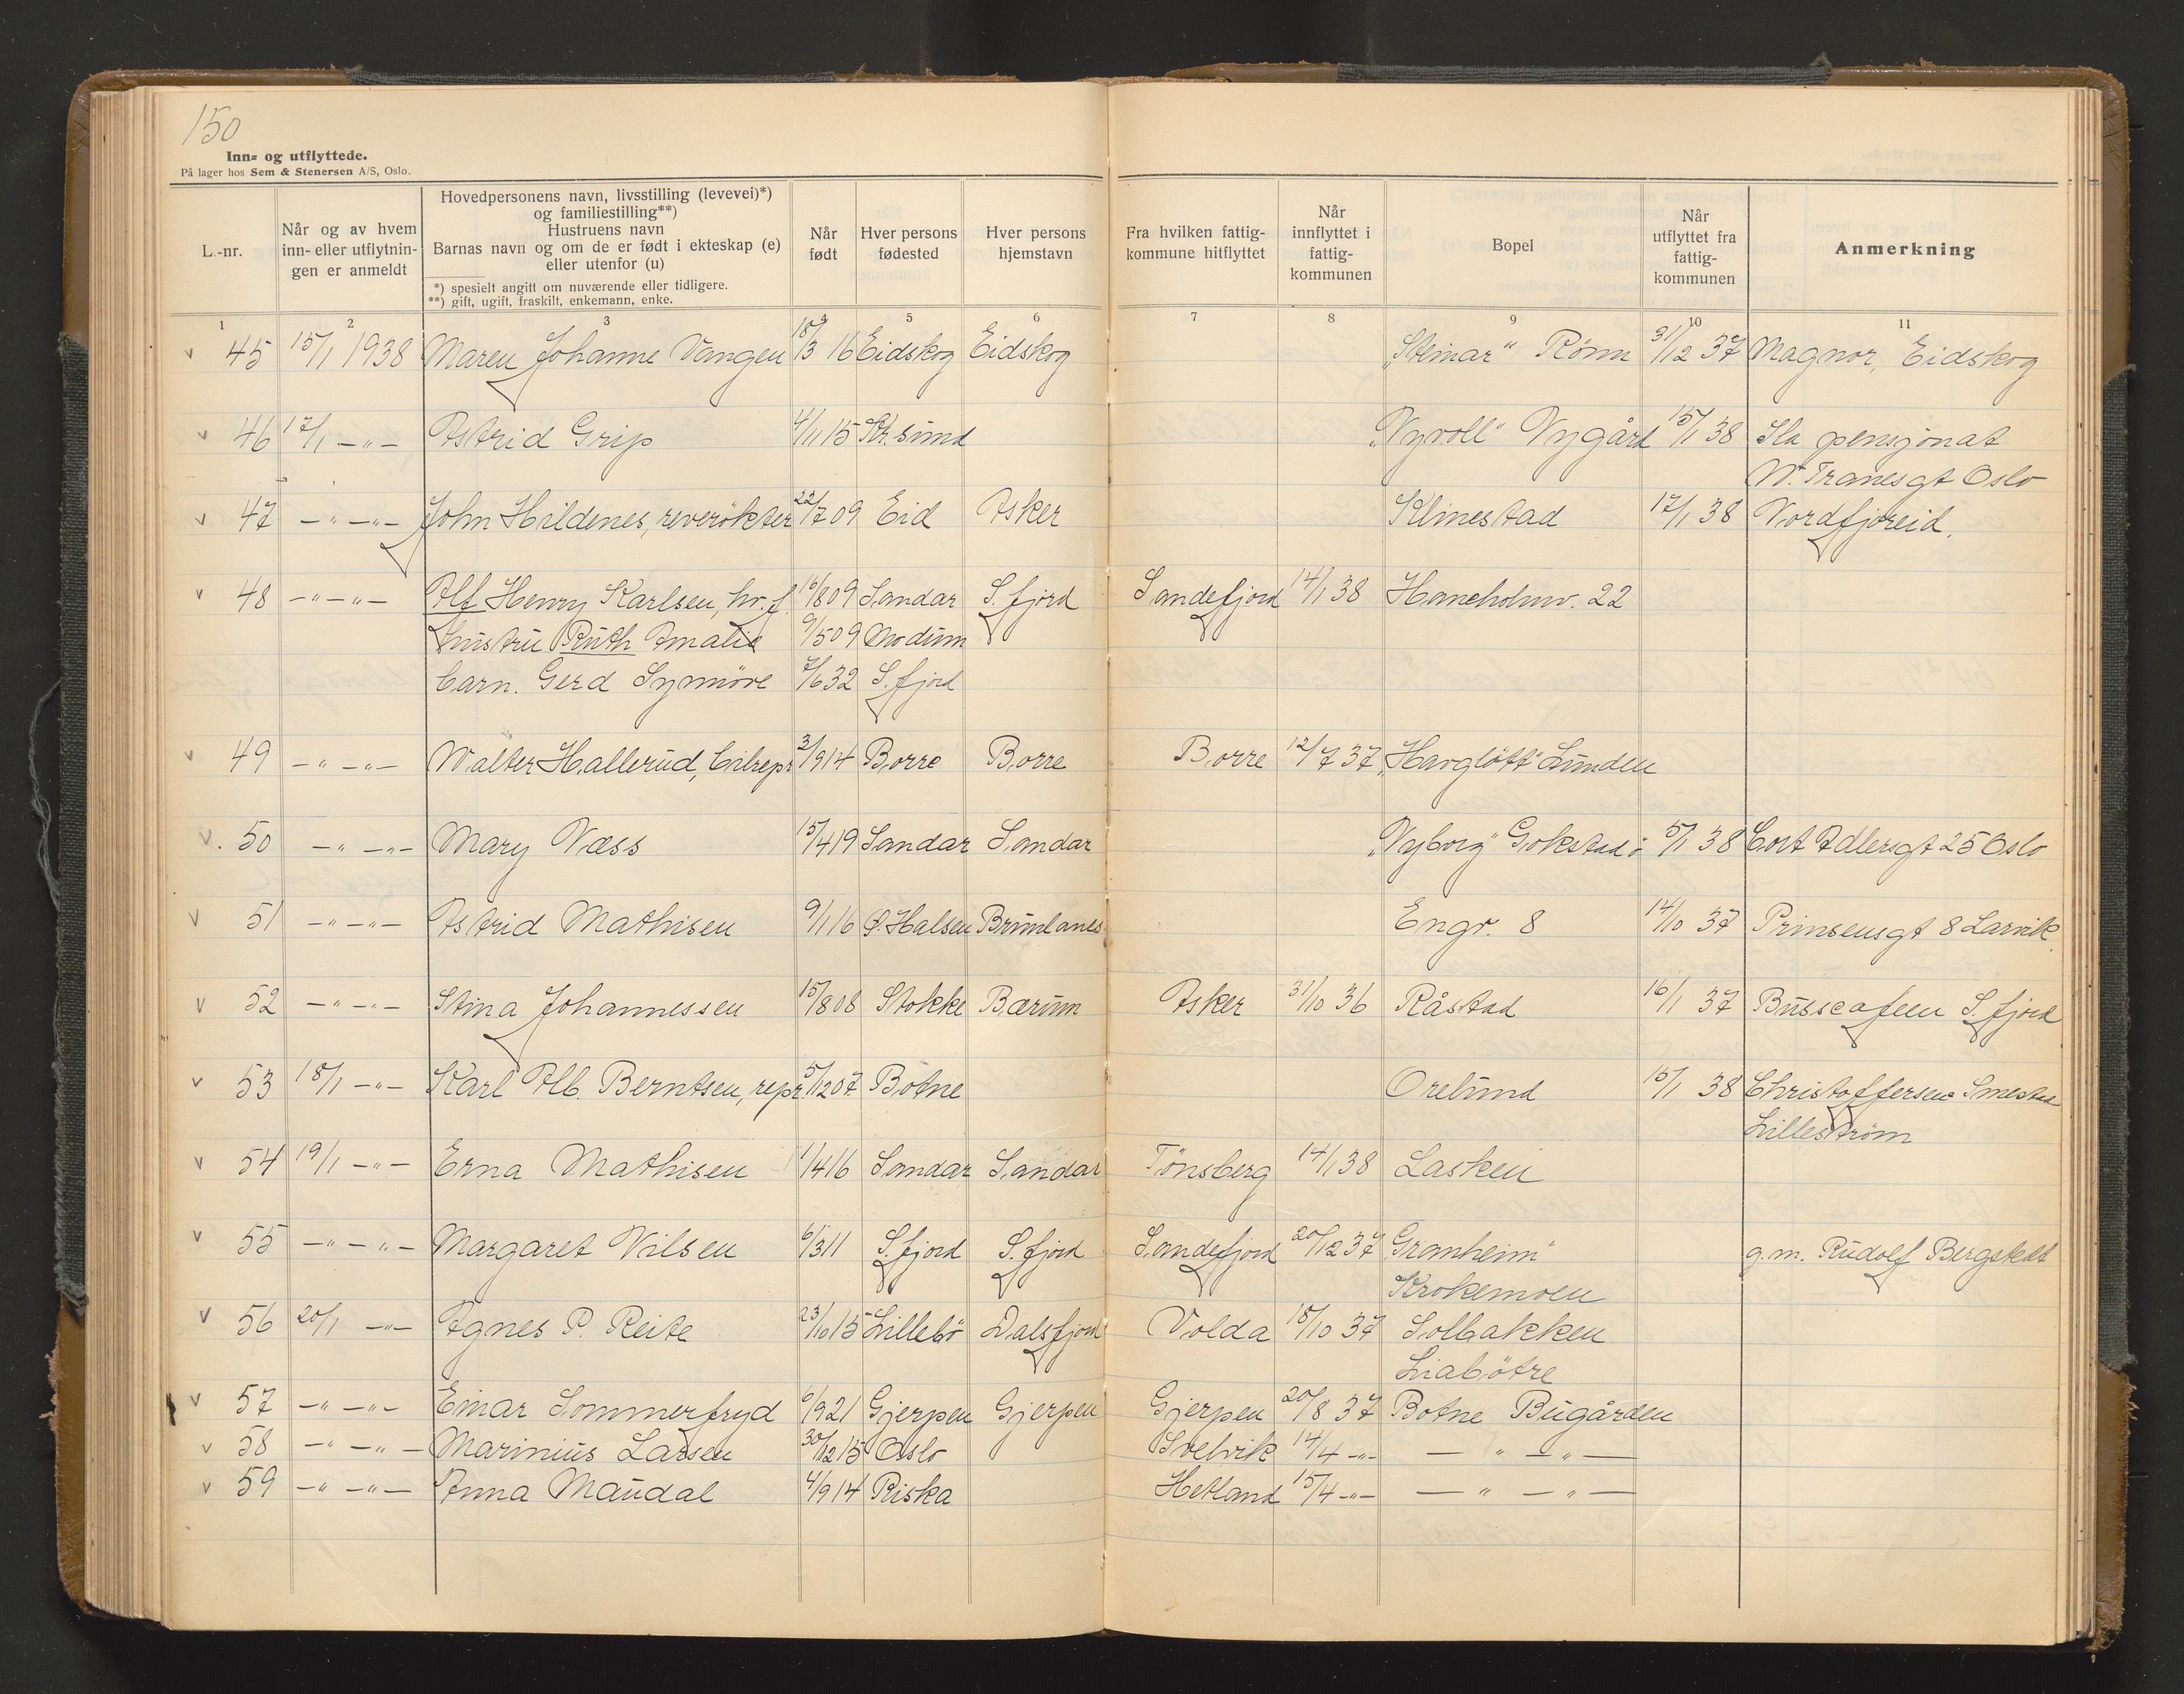 150
Inn- og utflyttede.
På lager hos Sem & Stenersen A/S, Oslo.
L.-nr.
Når og av hvem inn- eller utflytnin-gen er anmeldt
Hovedpersonens navn, livsstilling (levevei)*) og familiestilling**) Hustruens navn Barnas navn og om de er født i ekteskap (e) eller utenfor (u)
*) spesielt angitt om nuværende eller tidligere.
**) gift, ugift, fraskilt, enkemann, enke.
Når født
Hver persons fødested
Hver persons hjemstavn
Fra hvilken fattig-kommune hitflyttet
Når innflyttet i fattig-kommunen
Bopel
Når utflyttet fra fattig-kommunen
Anmerkning
1 2 3 4 5 6 7 8 9 10 11
v 45 15/1 1938 Maren Johanne Vangen 18/3 16 Eidskog Eidskog "Steinar" Rönn 31/12 37 Magnor, Eidskog
v 46 17/1 -"- Astrid Grip 4/11 15 Kr.sund "Nyvoll" Nygård 15/1 38 Ila pensjonat
W. Tranesgt Oslo
v 47 -"- -"- John Hildenes, reverökter 22/7 09 Eid Asker Klinestad 17/1 38 Nordfjoreid.
v 48 -"- -"- Alf Henry Karlsen, hv.f. 16/8 09 Sandar S.fjord Sandefjord 14/1 38 Haneholmv. 22
hustru Ruth Amalie 9/5 09 Modum
barn. Gerd Synnöve 7/6 32 S.fjord
v 49 -"- -"- Walter Hallerud, bilrepr 3/9 14 Borre Borre Borre 12/7 37 "Havglött" Lunden
v. 50 -"- -"- Mary Næss 15/4 19 Sandar Sandar "Nyborg" Gokstad ö 5/1 38 Cort Adlersgt 25 Oslo
v 51 -"- -"- Astrid Mathisen 9/1 16 Ö.Halsen Brunlanes Engv. 8 14/10 37 Prinsensgt 8 Larvik.
v 52 -"- -"- Stina Johannessen 15/8 08 Stokke Bærum Asker 31/10 36 Råstad 16/1 37 Busscafeen S.fjord
v 53 18/1 -"- Karl Alb. Berntsen, repr. 5/12 07. Botne Orelund 15/1 38 Christoffersen Smestad
Lilleström
v 54 19/1 -"- Erna Mathisen 1/4 16 Sandar Sandar Tönsberg 14/1 38 Lasken
v 55 -"- -"- Margaret Nilsen 6/3 11 S.fjord S.fjord Sandefjord 20/12 37 Granheim" g.m. Rudolf Bergskdt
Krokemoen
v 56 20/1 -"- Agnes P. Reite 23/10 15 Lillebö Dalsfjord Volda 18/10 37 Solbakken
Liabötre
v 57 -"- -"- Einar Sommerfryd 6/9 21 Gjerpen Gjerpen Gjerpen 20/8 37 Botne Bugården
v 58 -"- -"- Marinius Larsen 30/12 15 Oslo Svelvik 14/4 -"- -"- -"-
v 59 -"- -"- Anna Maudal 4/9 14 Riska Hetland 15/4 -"- -"- -"-